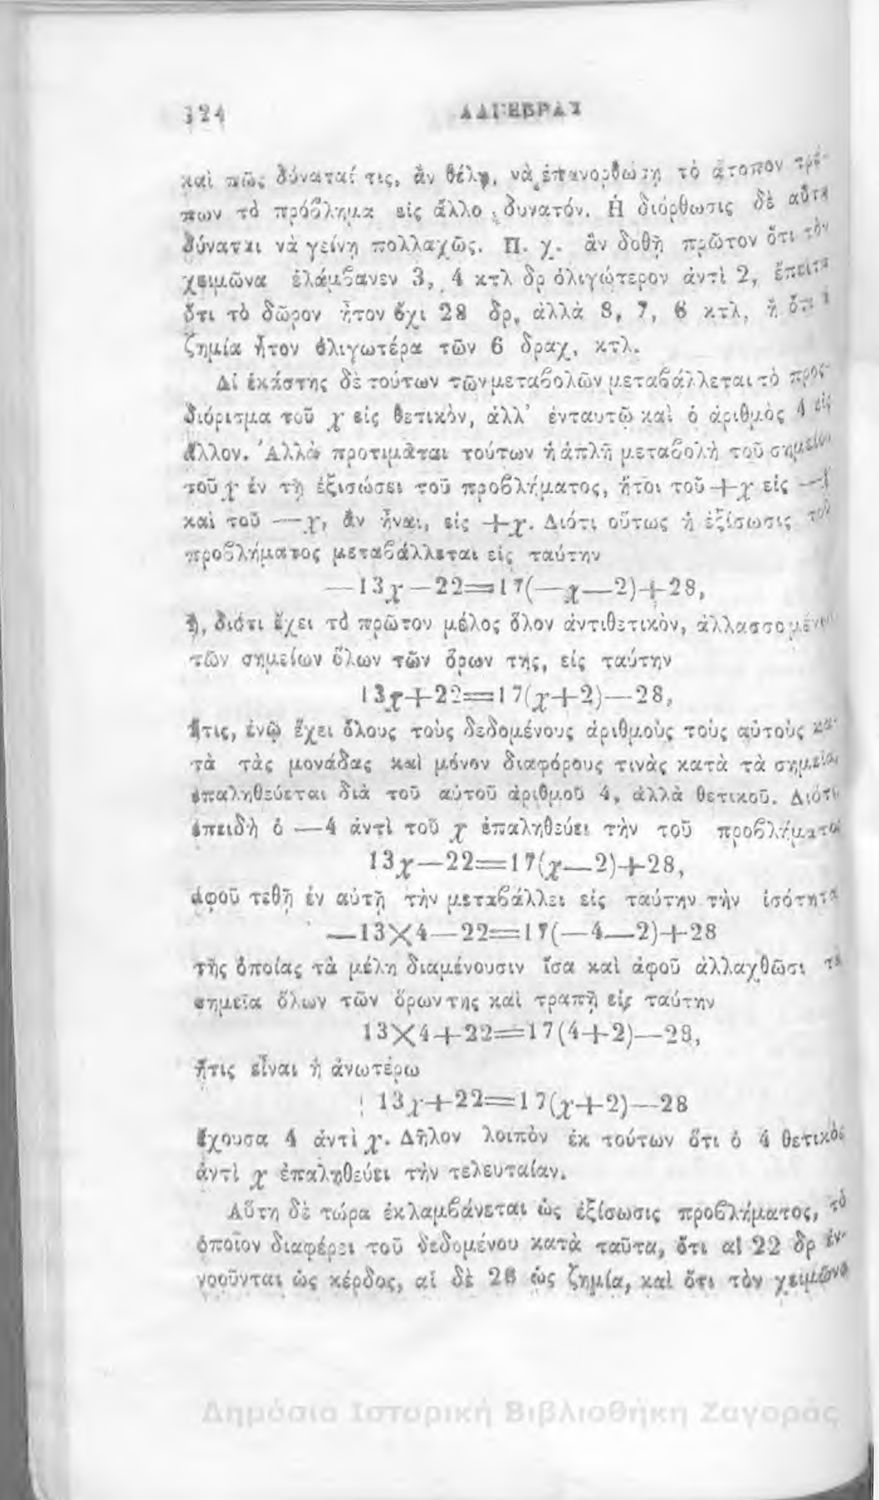 124 ΑΛΓΕΒΡΑΣ
καὶ πῶς δύναταί τις, ἂν θέλῃ, νὰ ἐπανορθώσῃ τὸ ἄτοπον τρέ-
πων τὸ πρόβλημα εἰς ἄλλο δυνατόν. Ἡ διόρθωσις δὲ αὕτη
δύναται νὰ γείνῃ πολλαχῶς. Π. χ. ἂν δοθῇ πρῶτον ὅτι τὸν
χειμῶνα ἐλάμβανεν 3, 4 κτλ δρ ὀλιγώτερον ἀντὶ 2, ἔπειτα
ὅτι τὸ δῶρον ἦτον ὄχι 28 δρ, ἀλλὰ 8, 7, 6 κτλ, ἢ ὅτι ἡ
ζημία ἦτον ὀλιγωτέρα τῶν 6 δραχ, κτλ.
Δι ἑκάστης δὲ τούτων τῶν μεταβολῶν μεταβάλλεται τὸ προς-
διόρισμα τοῦ χ εἰς θετικὸν, ἀλλ' ἐνταυτῷ καὶ ὁ ἀριθμὸς 4 εἰς
ἄλλον. Ἀλλὰ προτιμᾶται τούτων ἡ ἁπλῆ μεταβολὴ τοῦ σημείου
τοῦ χ ἐν τῇ ἐξισώσει τοῦ προβλήματος, ἤτοι τοῦ +χ εἰς —χ
καὶ τοῦ —χ, ἂν ἦναι, εἰς +χ. Διότι οὕτως ἡ ἐξίσωσις τοῦ
προβλήματος μεταβάλλεται εἰς ταύτην
—13χ—22=17(—χ—2)+28,
ἢ, διότι ἔχει τὸ πρῶτον μέλος ὅλον ἀντιθετικὸν, ἀλλασσομένων
τῶν σημείων ὅλων τῶν ὅρων της, εἰς ταύτην
13χ+22=17(χ+2)—28,
ἥτις, ἐνῷ ἔχει ὅλους τοὺς δεδομένους ἀριθμοὺς τοὺς αὐτοὺς κα-
τὰ τὰς μονάδας καὶ μόνον διαφόρους τινὰς κατὰ τὰ σημεῖα,
ἐπαληθεύεται διὰ τοῦ αὐτοῦ ἀριθμοῦ 4, ἀλλὰ θετικοῦ. Διότι
ἐπειδὴ ὁ —4 ἀντὶ τοῦ χ ἐπαληθεύει τὴν τοῦ προβλήματος
13χ—22=17(χ—2)+28,
ἀφοῦ τεθῇ ἐν αὐτῇ τὴν μεταβάλλει εἰς ταύτην τὴν ἰσότητα
—13×4—22=17(—4—2)+28
τῆς ὁποίας τὰ μέλη διαμένουσιν ἴσα καὶ ἀφοῦ ἀλλαχθῶσι τὰ
σημεῖα ὅλων τῶν ὅρων της καὶ τραπῇ εἰς ταύτην
13×4+22=17(4+2)—28,
ἥτις εἶναι ἡ ἀνωτέρω
13χ+22=17(χ+2)—28
ἔχουσα 4 ἀντὶ χ. Δῆλον λοιπὸν ἐκ τούτων ὅτι ὁ 4 θετικὸς
ἀντὶ χ ἐπαληθεύει τὴν τελευταίαν.
Αὕτη δὲ τώρα ἐκλαμβάνεται ὡς ἐξίσωσις προβλήματος, τὸ
ὁποῖον διαφέρει τοῦ δεδομένου κατὰ ταῦτα, ὅτι αἱ 22 δρ ἐν-
νοοῦνται ὡς κέρδος, αἱ δὲ 28 ὡς ζημία, καὶ ὅτι τὸν χειμῶνα
Δημόσια Ιστορική Βιβλιοθήκη Ζαγοράς